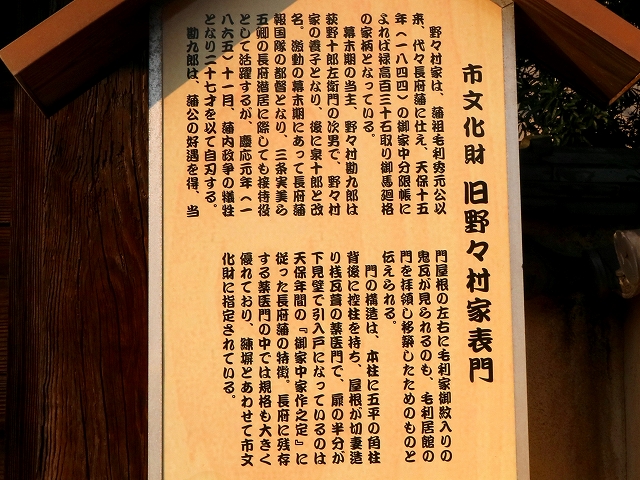 市文化財 旧野々村家表門
野々村家は、藩祖毛利秀元公以
来、代々長府藩に仕え、天保十五
年（一八四四）の御家中分限帳に
よれば禄高百三十石取り御馬廻格
の家柄となっている。
幕末期の当主、野々村勘九郎は
荻野十郎左衛門の次男で、野々村
家の養子となり、後に泉十郎と改
名。激動の幕末期にあって長府藩
報国隊の都督となり、三条実美ら
五卿の長府潜居に際しても接待役
として活躍するが、慶応元年（一
八六五）十一月、藩内政争の犠牲
となり二十七才を以て自刃する。
勘九郎は、藩公の好遇を得、当
門屋根の左右に毛利家御紋入りの
鬼瓦が見られるのも、毛利居館の
門を拝領し移築したためのものと
伝えられる。
門の構造は、本柱に五平の角柱
背後に控柱を持ち、屋根が切妻造
り桟瓦葺の薬医門で、扉の半分が
下見壁で引入戸になっているのは
天保年間の『御家中家作之定』に
従った長府藩の特徴。長府に残存
する薬医門の中では規格も大きく
優れており、練塀とあわせて市文
化財に指定されている。